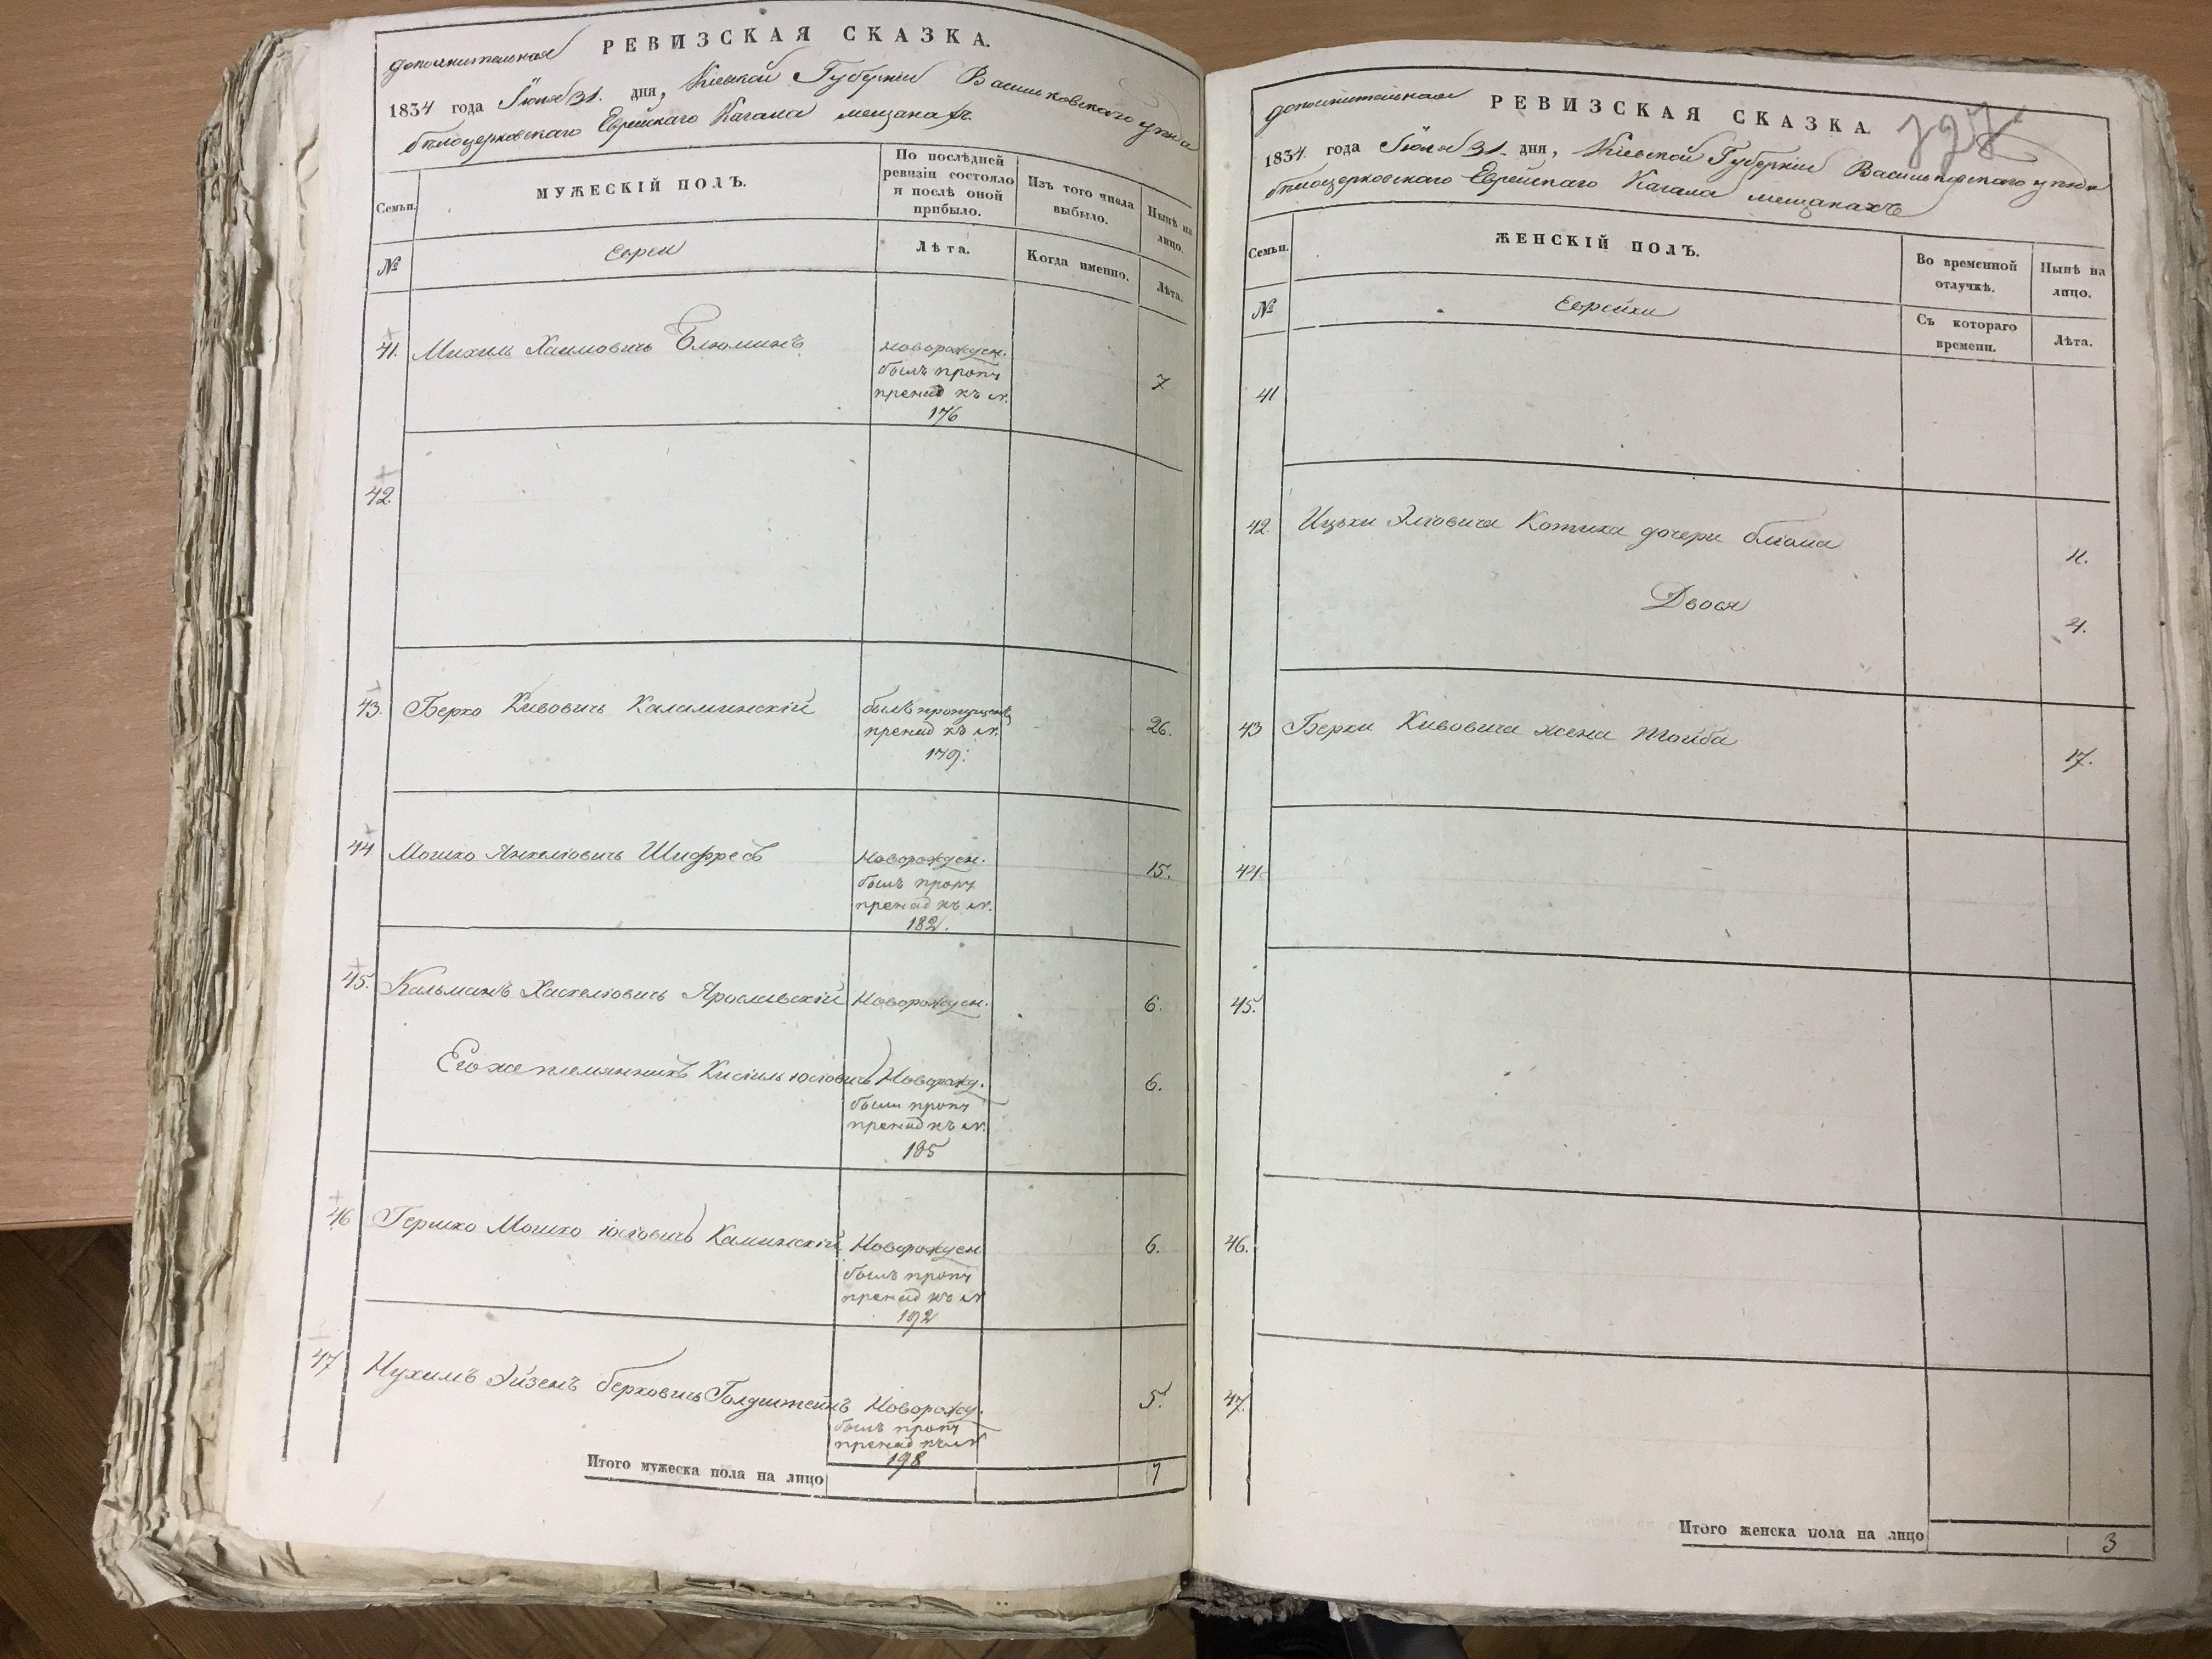 дополнительная РЕВИЗСКАЯ СКАЗКА.
1834 года Іюля 31. дня, Кіевской Губерніи Васильковского уезда
белоцерковскаго Еврейскаго Кагала мещанахъ
Семьи.
МУЖЕСКІЙ ПОЛЪ.
По послѣдней ревизіи состояло и послѣ оной прибыло.
Изъ того числа выбыло.
Нынѣ на лицо.
№
Евреи
Лѣта.
Когда именно.
Лѣта.
41. Михель Хаимовичь Блюминъ новорожден. 7
былъ проп
пренад къ №.
176
42.
43. Берко Кивовичь Каламинскій былъ пропущенъ 26.
пренад къ №.
179.
44 Мошко Янкелювичь Шифресъ Новорожден. 15.
былъ проп
пренад къ №.
182.
45. Кальманъ Хаскелювичь Ярославскій Новорожден. 6.
Его же племянникъ Кисіль Юсіовичь Новорожд. 6.
были проп
пренад къ №.
185
46 Гершко Мошко Юсіовичь Каминскій Новорожден 6.
былъ проп
пренад къ №
192
47 Нухимъ Эйзенъ берковичь Голдштейнъ Новорожд. 5.
былъ проп
пренад къ №
198
Итого мужеска пола на лицо 7
727
дополнительная РЕВИЗСКАЯ СКАЗКА.
1834. года Іюля 31. дня, Кіевской Губерніи Васильковскаго уезда
белоцерковскаго Еврейскаго Кагала мещанахъ
Семьи.
ЖЕНСКІЙ ПОЛЪ.
Во временной отлучкѣ.
Нынѣ на лицо.
№
Еврейки
Съ котораго времени.
Лѣта.
41
42. Ицьки Эліовича Котика дочери бліома 11.
Двося 4.
43 Берки Кивовича жена Тойба 17.
44.
45.
46.
47.
Итого женска пола на лицо 3